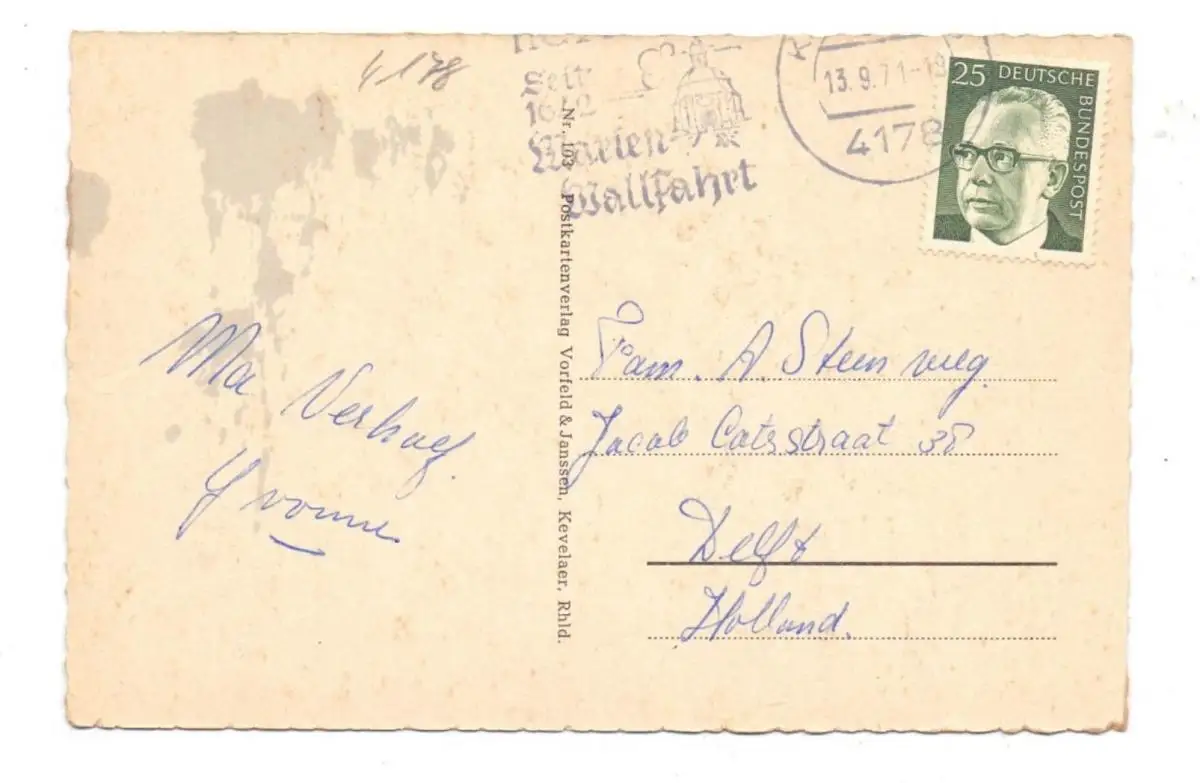 4178
Seit
1642
Marien
Wallfahrt
13.9.71-19
4178
25 DEUTSCHE BUNDESPOST
Nr. 103 Postkartenverlag Vorfeld & Janssen, Kevelaer, Rhld.
Ma Verhoef.
Yvonne
Fam. A. Steenweg.
Jacob Catsstraat 38
Delft
Holland.